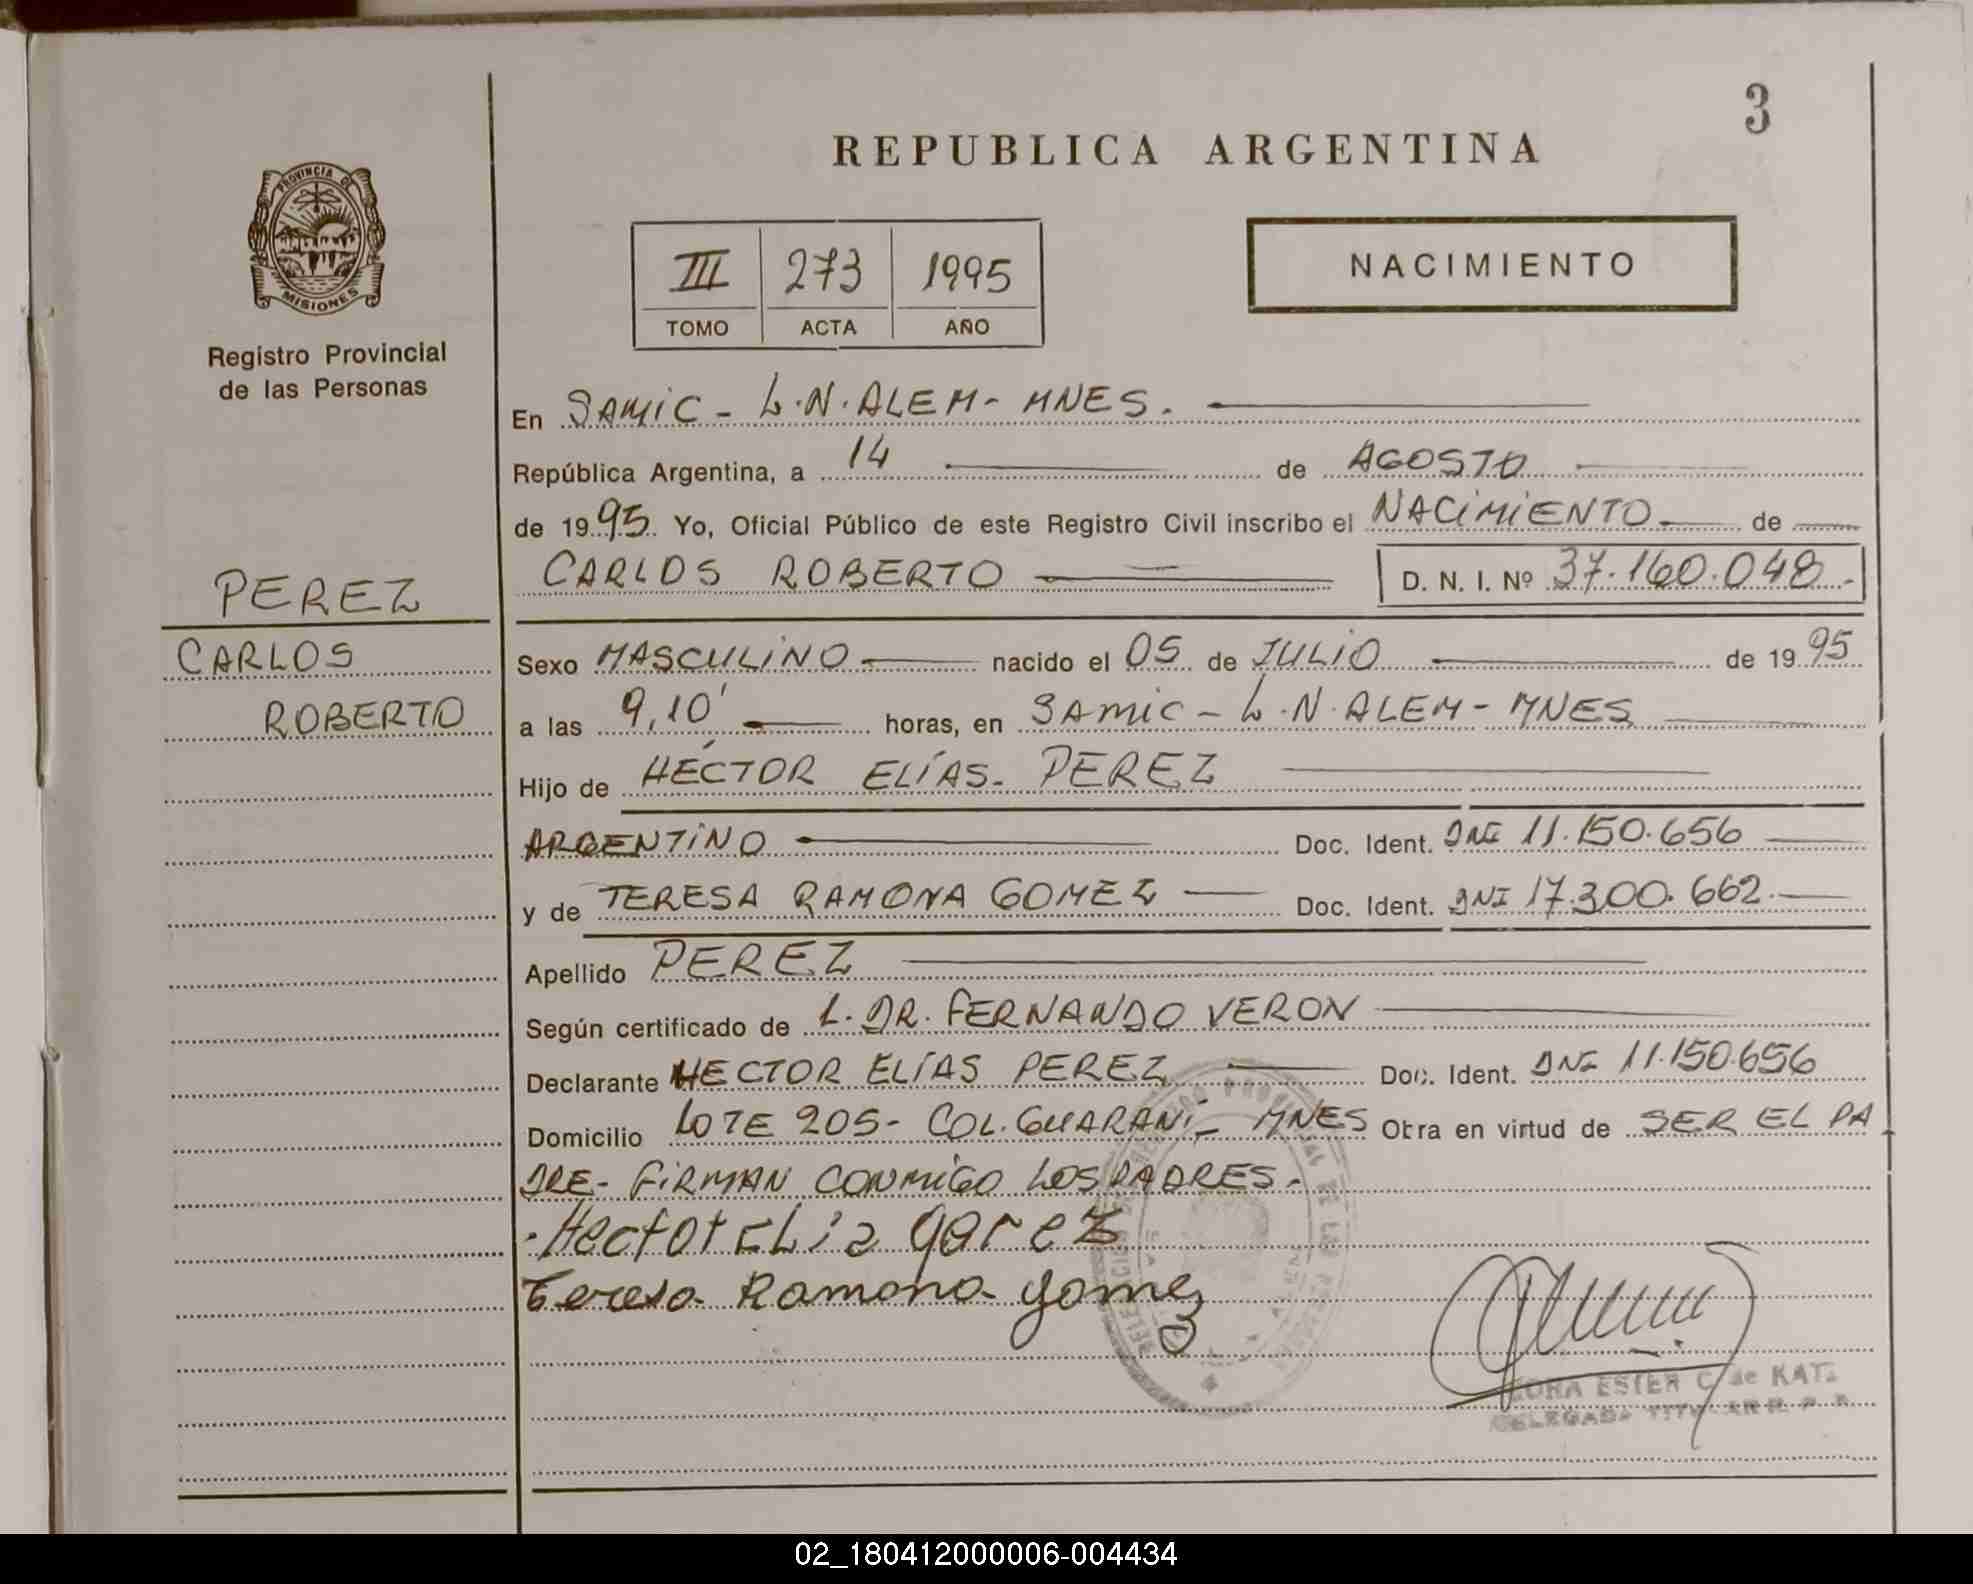 3
REPUBLICA ARGENTINA
PROVINCIA DE
MISIONES
Registro Provincial
de las Personas
III 273 1995
TOMO ACTA AÑO
NACIMIENTO
En SAMIC - L.N. ALEM - MNES.
República Argentina, a 14 de AGOSTO
de 1995 Yo, Oficial Público de este Registro Civil inscribo el NACIMIENTO de
CARLOS ROBERTO D. N. I. Nº 37.160.048
PEREZ
CARLOS
ROBERTO
Sexo MASCULINO nacido el 05 de JULIO de 1995
a las 9,10' horas, en SAMIC - L.N. ALEM - MNES
Hijo de HÉCTOR ELÍAS - PEREZ
ARGENTINO Doc. Ident. DNI 11.150.656
y de TERESA RAMONA GOMEZ Doc. Ident. DNI 17.300.662
Apellido PEREZ
Según certificado de L. DR. FERNANDO VERON
Declarante HECTOR ELÍAS PEREZ Doc. Ident. DNI 11.150.656
Domicilio LOTE 205 - COL. GUARANÍ - MNES Obra en virtud de SER EL PA
DRE - FIRMAN CONMIGO LOS PADRES.
Hector Elia Perez
Teresa Ramona Gomez
ESTER C. de KATZ
DELEGADA TITULAR R. P. P.
02_180412000006-004434